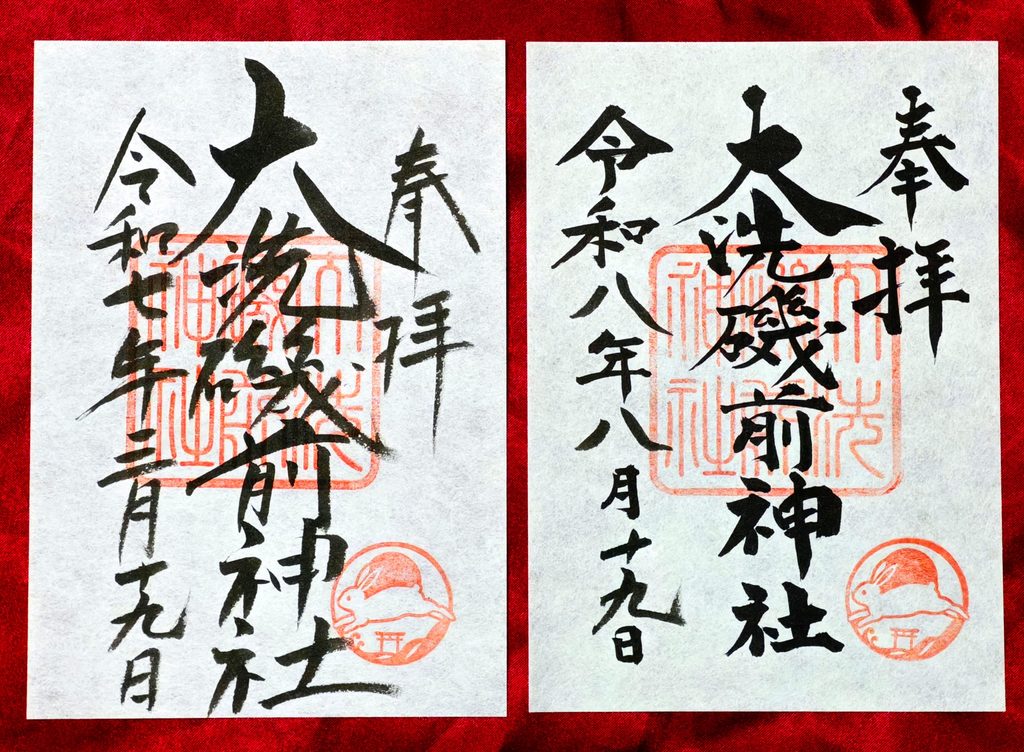 奉拝
大洗磯前神社
令和七年三月十九日
大洗
磯前
神社
奉拝
大洗磯前神社
令和八年八月十九日
大洗
磯前
神社